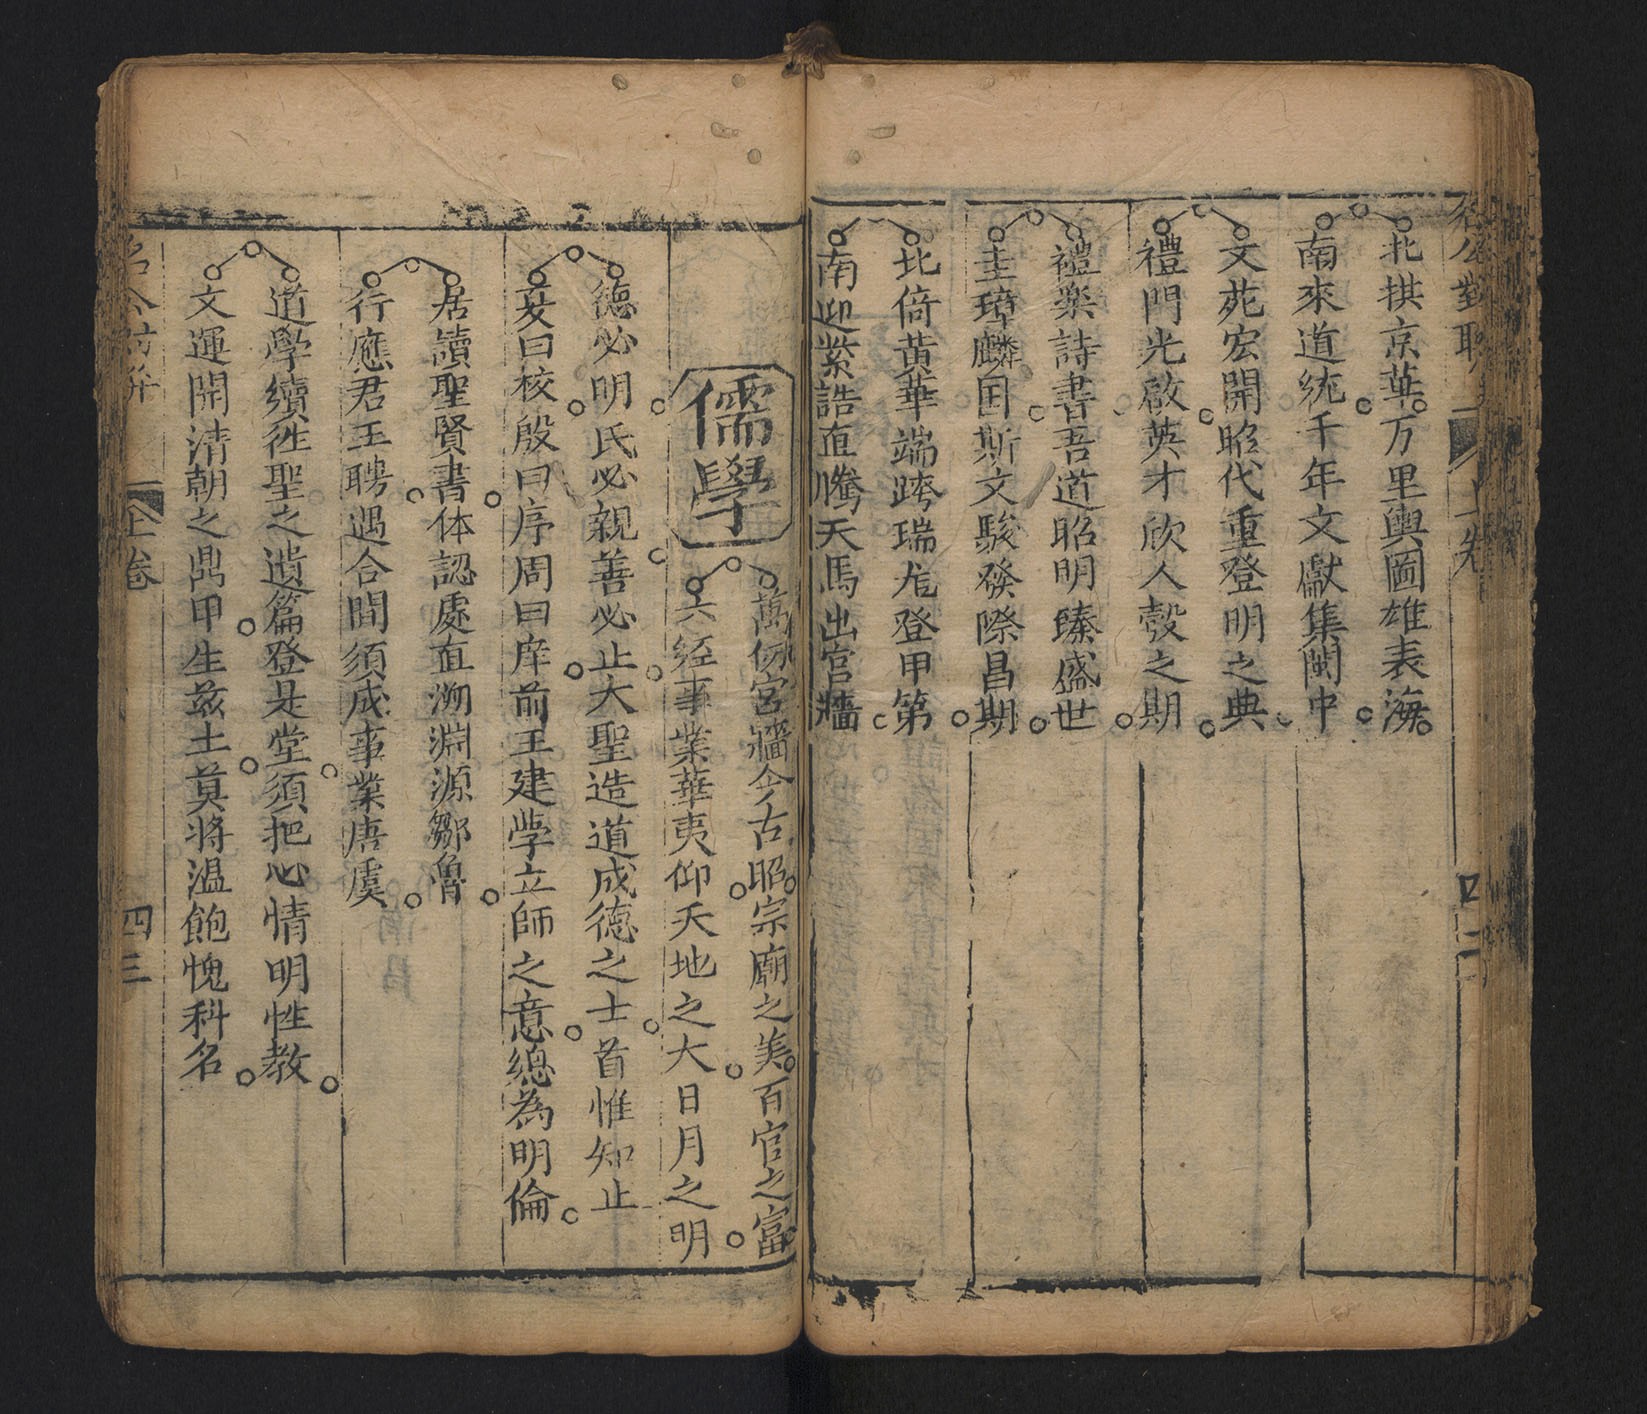 北拱京華万里輿圖雄表海
南來道统千年文獻集閩中
文苑宏開昭代重登明之典
禮門光啟英才欣人彀之期
禮楽詩書吾道昭明臻盛世
圭璋麟国斯文駿發際昌期
北倚黃華端跨瑞龙登甲第
南迎紫誥直騰天馬出宫牆
儒學
萬仞宮牆今古昭宗廟之美百官之富
六经事業華夷仰天地之大日月之明
德必明民必親善必止大聖造道成德之士首惟知止
夏曰校殷曰序周曰庠前王建斈立師之意總為明倫
居讀聖賢書体認處直溯淵源鄒魯
行應君王聘遇合間須成事業唐虞
道學續徃聖之遺篇登是堂須把心情明性教
文運開清朝之鼎甲生兹土莫將温飽愧科名
上卷
四三